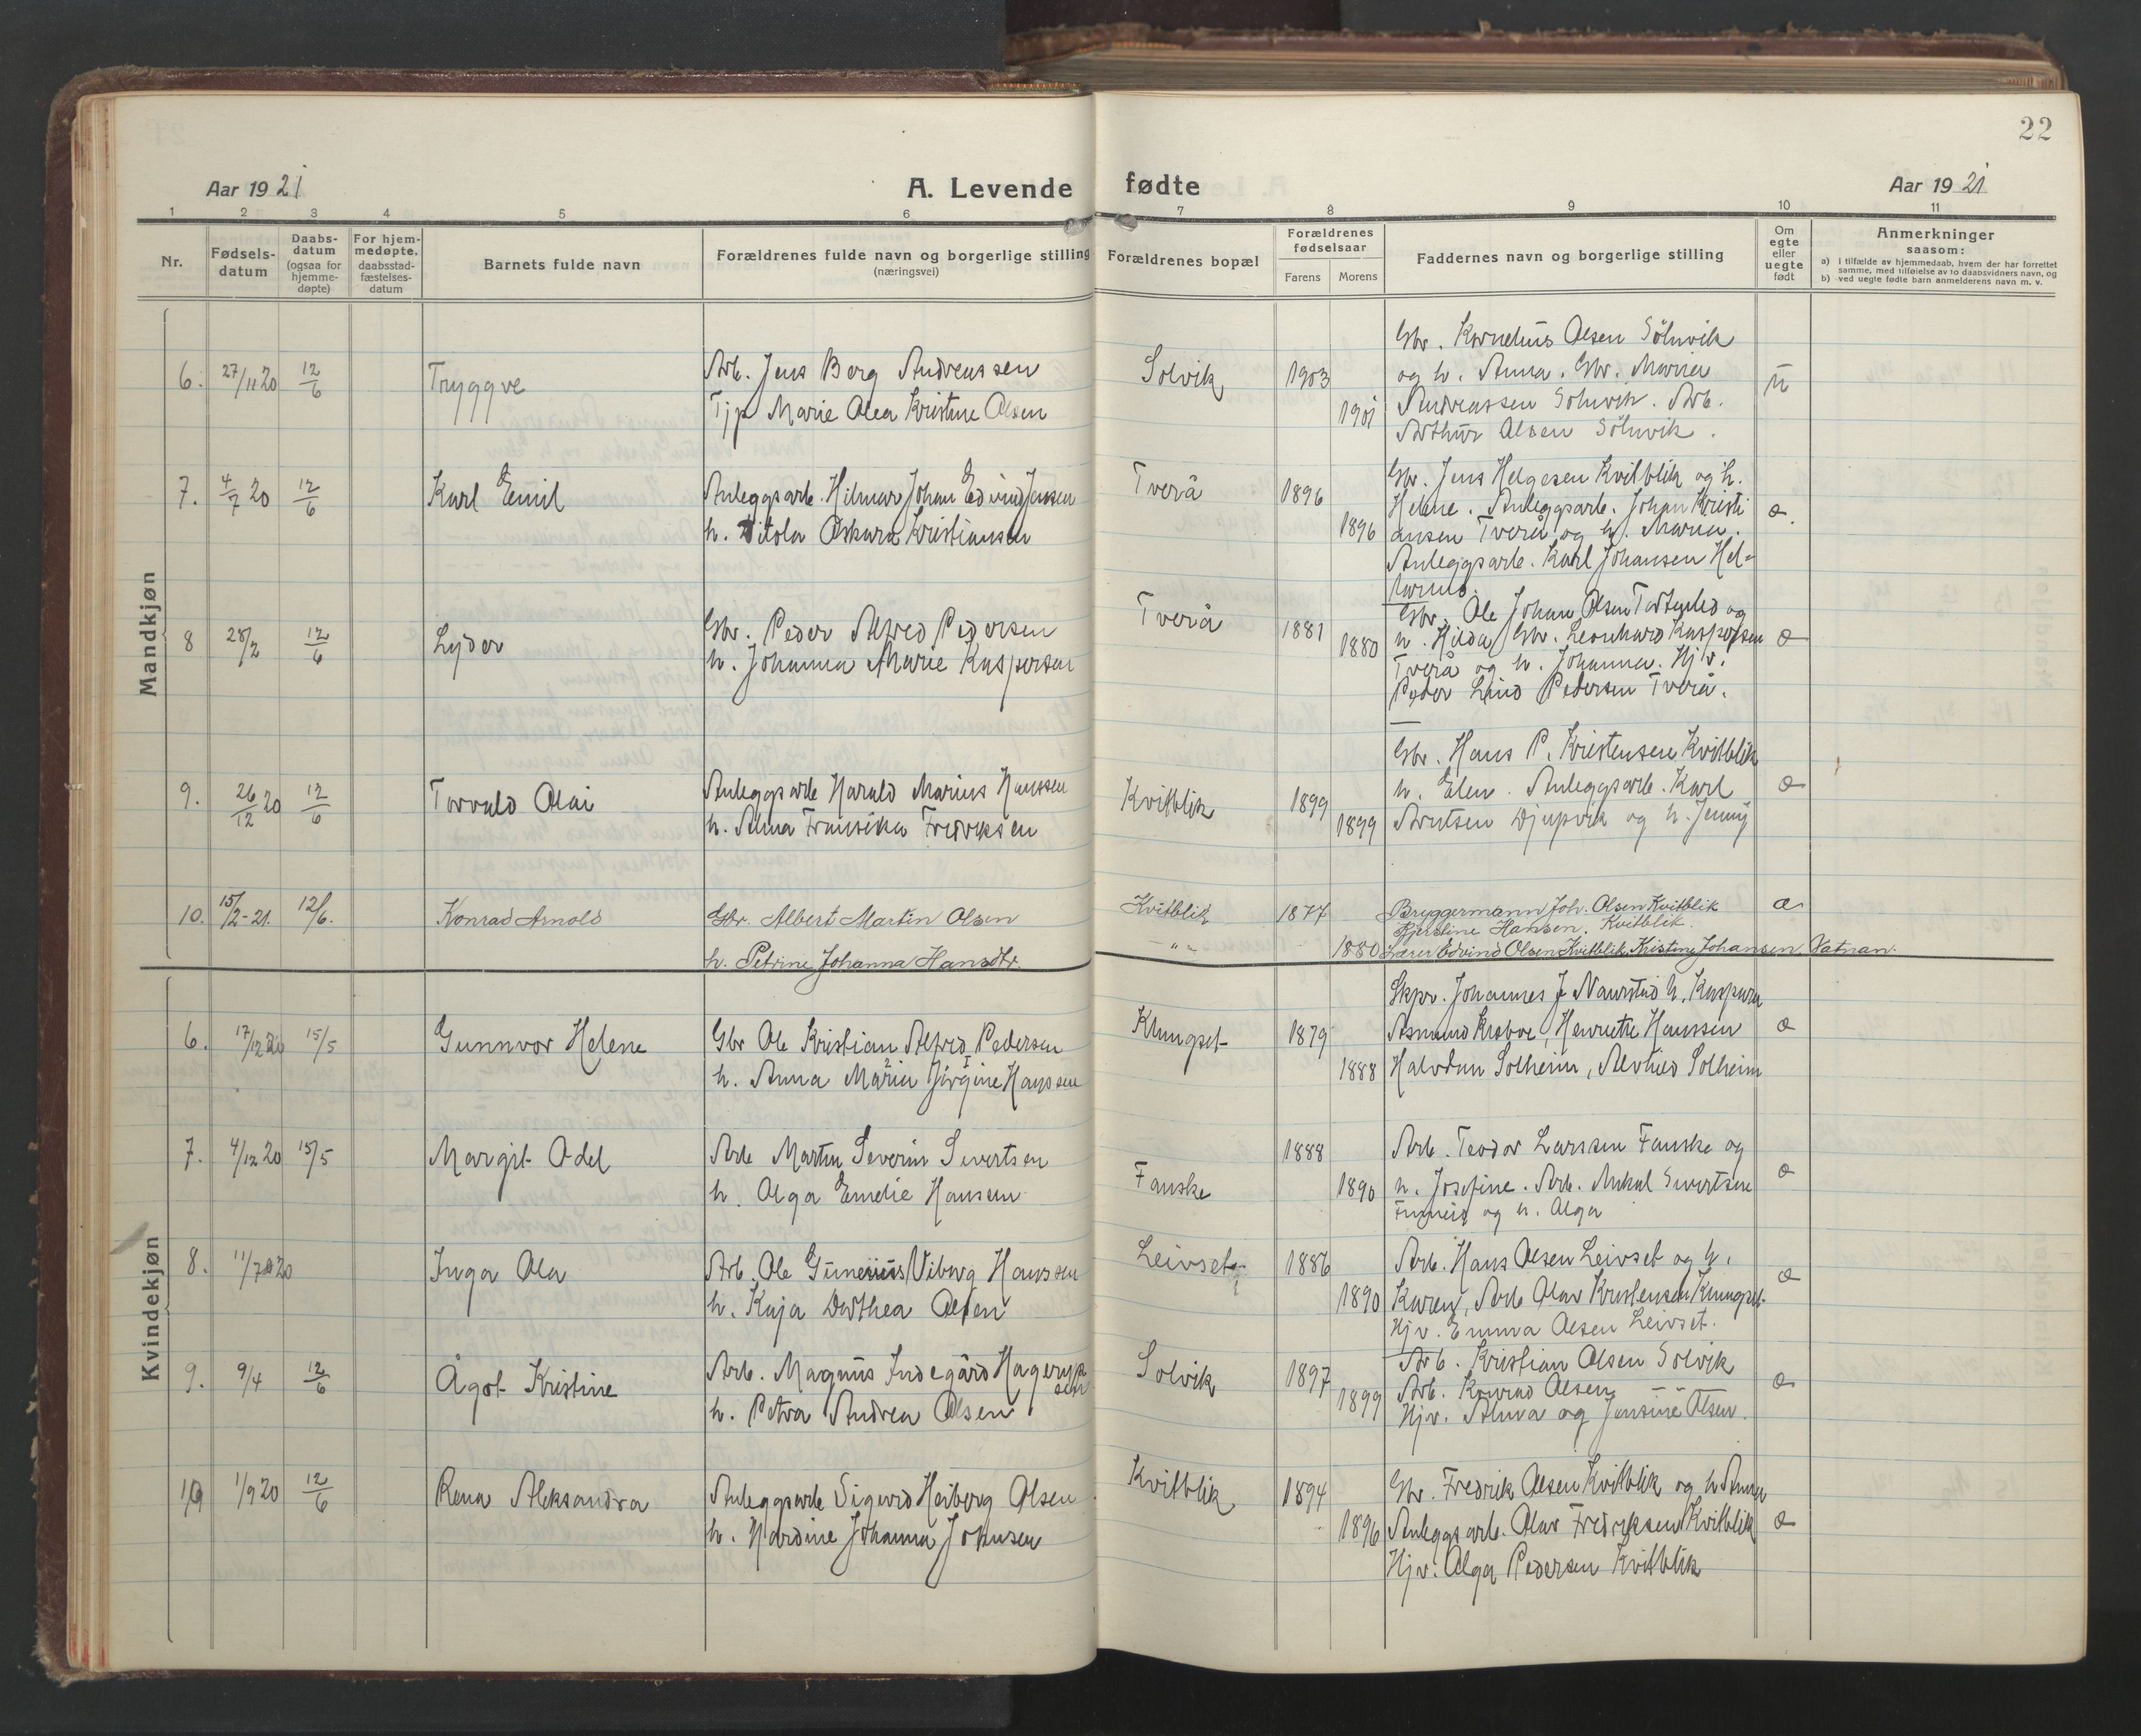 22
Aar 1921
A. Levende fødte
Aar 1921
1 2 3 4 5 6 7 8 9 10 11
Nr.
Fødsels-
datum
Daabs-
datum
(ogsaa for
hjemme-
døpte)
For hjem-
medøpte.
daabsstad-
fæstelses-
datum
Barnets fulde navn
Forældrenes fulde navn og borgerlige stilling
(næringsvei)
Forældrenes bopæl
Forældrenes
fødselsaar
Farens Morens
Faddernes navn og borgerlige stilling
Om
egte
eller
uegte
født
Anmerkninger
saasom:
a) i tilfælde av hjemmedaab, hvem der har forrettet
samme, med tilføielse av to daabsvidners navn, og
b) ved uegte fødte barn anmelderens navn m. v.
Mandkjøn
6. 27/11 20 12/6 Tryggve
Arb. Jens Berg Andreassen
Tjp Marie Olea Kristine Olsen
Solvik 1903
1901
Gbr. Kornelius Olsen Sölnvik
og h. Anna. Gbr. Maria
Andreassen Sölnvik. Arb.
Arthur Olsen Sölnvik.
u
7. 4/7 20 12/6 Karl Emil
Anleggsarb. Hilmar Johan Edvind Jensen
h. Oskara Kristiansen
Tverå 1896
1896
Gbr. Jens Helgesen Kvitblik og h.
Helene. Anleggsarb. Johan Kristi
ansen Tverå og h. Maria.
Anleggsarb. Karl Johansen Hel-
æ.
8 28/2 12/6 Lyder
Gbr. Peder Alfred Pedersen
h. Johanna Marie Kaspersen
Tverå 1881
1880
Gbr. Ole Johan Olsen og
h. Hilda, Gbr. Leonhard Kaspersen
Tverå og h. Johanna. Hjv.
Peder Lind Pedersen Tverå.
æ
9. 26/12 20 12/6 Torvald Olai
Anleggsarb Harald Marius Hanssen
h. Alma Fransika Fredriksen
Kvitblik 1899
1899
Gbr. Hans P. Kristensen Kvitblik
h. Elen. Anleggsarb. Karl
Arntsen Djupvik og h. Jenny
æ
10. 15/2-21. 12/6. Konrad Arnold
Gbr. Albert Martin Olsen
h. Petrine Johanna Hansdtr.
Kvitblik 1877
— " — 1880
Bryggermann Joh. Olsen Kvitblik
Kjerstine Hansen, Kvitblik.
Lærer Edvind Olsen Kvitblik, Kristine Johansen, Vatnan.
æ
Kvindekjøn
6. 17/12 20 15/5 Gunnvor Helene
Gbr Ole Kristian Alfred Pedersen
h. Anna Maria Jörgine Hanssen
Klungset 1879
1888
Skpr. Johannes J Naurstad h. Kaspara
Asmund , Henriette Hanssen
Halvdan Solheim, Alvhild Solheim
æ
7. 4/12 20 15/5 Margit Odel
Arb Martin Severin Sivertsen
h. Olga Emelie Hansen
Fauske 1888
1890
Arb. Teodor Larssen Fauske og
h. Josefine. Arb. Mikal Sivertsen
Finneid og h. Olga
æ
8. 11/7 20 Inga Ola
Arb. Ole Gunerius Viberg Hanssen
h. Kaja Dorthea Olsen
Leivset 1886
1890
Arb. Hans Olsen Leivset og h.
Karen, Arb Olav Kristensen Klungset.
Hjv. Emma Olsen Leivset.
æ
9. 9/4 12/6 Ågot Kristine
Arb. Magnus Indegård Hagerup
sen
h. Petra Andrea Olsen
Solvik 1897
1899
Arb. Kristian Olsen Solvik
Arb. Konrad Olsen — " —
Hjv. Alma og Jensine Olsen.
æ
10 1/9 20 12/6 Rena Aleksandra
Anleggsarb Sigurd Heiberg Olsen
h. Hardine Johanna Johnsen
Kvitblik 1894
1896
Gbr. Fredrik Olsen Kvitblik og h Anna
Anleggsarb. Olav Fredriksen Kvitblik
Hjv. Olga Pedersen Kvitblik
æ